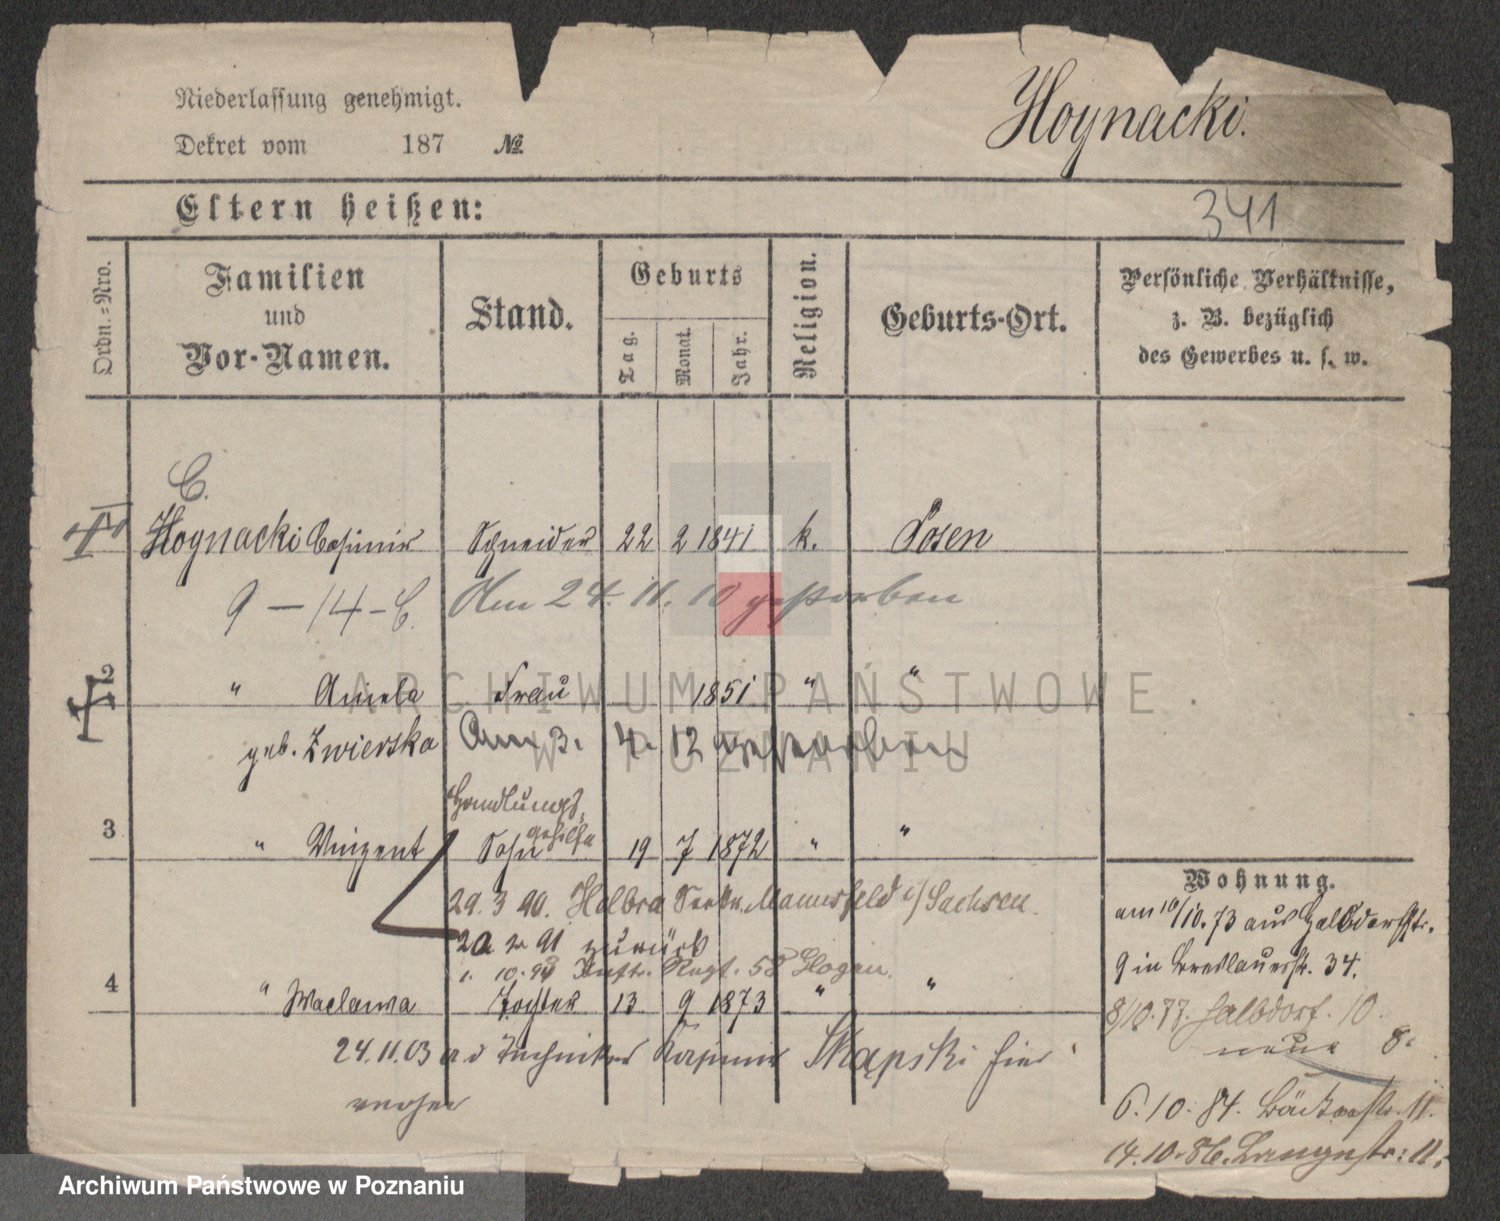 Niederlassung genehmigt.
Hoynacki.
Dekret vom 187 №
Eltern heißen:
341
Ordn.-Nro.
Familien
und
Vor-Namen.
Stand.
Geburts
Tag.
Monat.
Jahr.
Religion.
Geburts-Ort.
Persönliche Verhältnisse,
z. B. bezüglich
des Gewerbes u. s. w.
C.
Hoynacki Casimir Schneider 22 2 1841 k. Posen
9 — 14 – C. Am 24. 11. 10 gestorben
2 " Aniela Frau 1851 " "
geb. Zwierska Am 3. 4. 12 gestorben
Handlungs-
gehilfe
3 " Vinzent Sohn 19 7 1872 " "
29. 3 90. Helbra Mannsfeld i/ Sachsen.
20 91 zurück
10. 93 Inftr. Regt. 58 Glogau.
4 " Waclawa Tochter 13 9 1873 " "
24. 11. 03 a d Techniker Kasimir Skąpski hier
Wohnung.
am 10/10. 73 aus Halbdorfstr.
9 in Breslauerstr. 34.
8/10. 77. Halbdorf. 10.
neue 8.
6. 10. 84. Bäckerstr. 11.
14. 10. 86. Langestr: 11.
ARCHIWUM PAŃSTWOWE
W POZNANIU
Archiwum Państwowe w Poznaniu